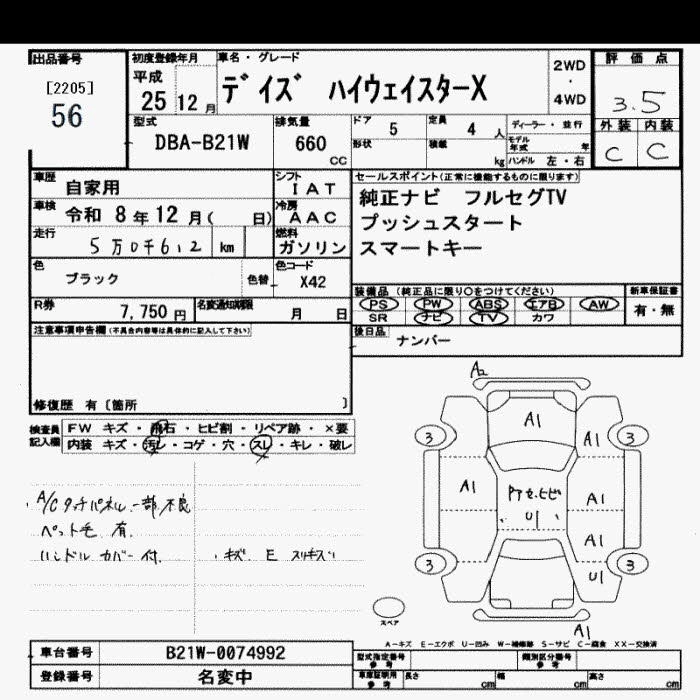 出品番号
[2205]
56
初度登録年月
平成
25 12月
車名・グレード
デイズ ハイウェイスターX
2WD
・
4WD
評価点
3.5
外装 内装
C C
型式
DBA-B21W
排気量
660
CC
ドア 5
形状
定員 4 人
積載 kg
ディーラー・並行
モデル年式 年
ハンドル 左・右
車歴 自家用
シフト
IAT
車検 令和 8年12月( 日)
冷房
AAC
走行 5万0千612 km
燃料
ガソリン
色 ブラック
色替
色コード
X42
R券 7,750円
名変通知期限 月 日
セールスポイント(正常に機能するものに限ります)
純正ナビ フルセグTV
プッシュスタート
スマートキー
装備品(純正品に限り○をつけてください)
PS PW ABS エアB AW
SR ナビ TV カワ
新車保証書
有・無
後日品
ナンバー
注意事項申告欄(不具合内容等は具体的に記入して下さい)
修復歴 有〔箇所 〕
検査員記入欄
FW キズ・飛石・ヒビ割・リペア跡・×要
内装 キズ・汚レ・コゲ・穴・スレ・キレ・破レ
A/Cタッチパネル一部不良
ペット毛 有.
ハンドルカバー付.
・キズ E スリキズ
A2
A1
A1
3 3
A1
A1
U1
A1
3 3
U1
A1
スペア
A-キズ E-エクボ U-凹み W-補修跡 S-サビ C-腐食 XX-交換済
車台番号 B21W-0074992
登録番号 名変中
型式指定番号
参考
類別区分番号
参考
車庫証明用
参考
長さ cm
幅 cm
高さ cm